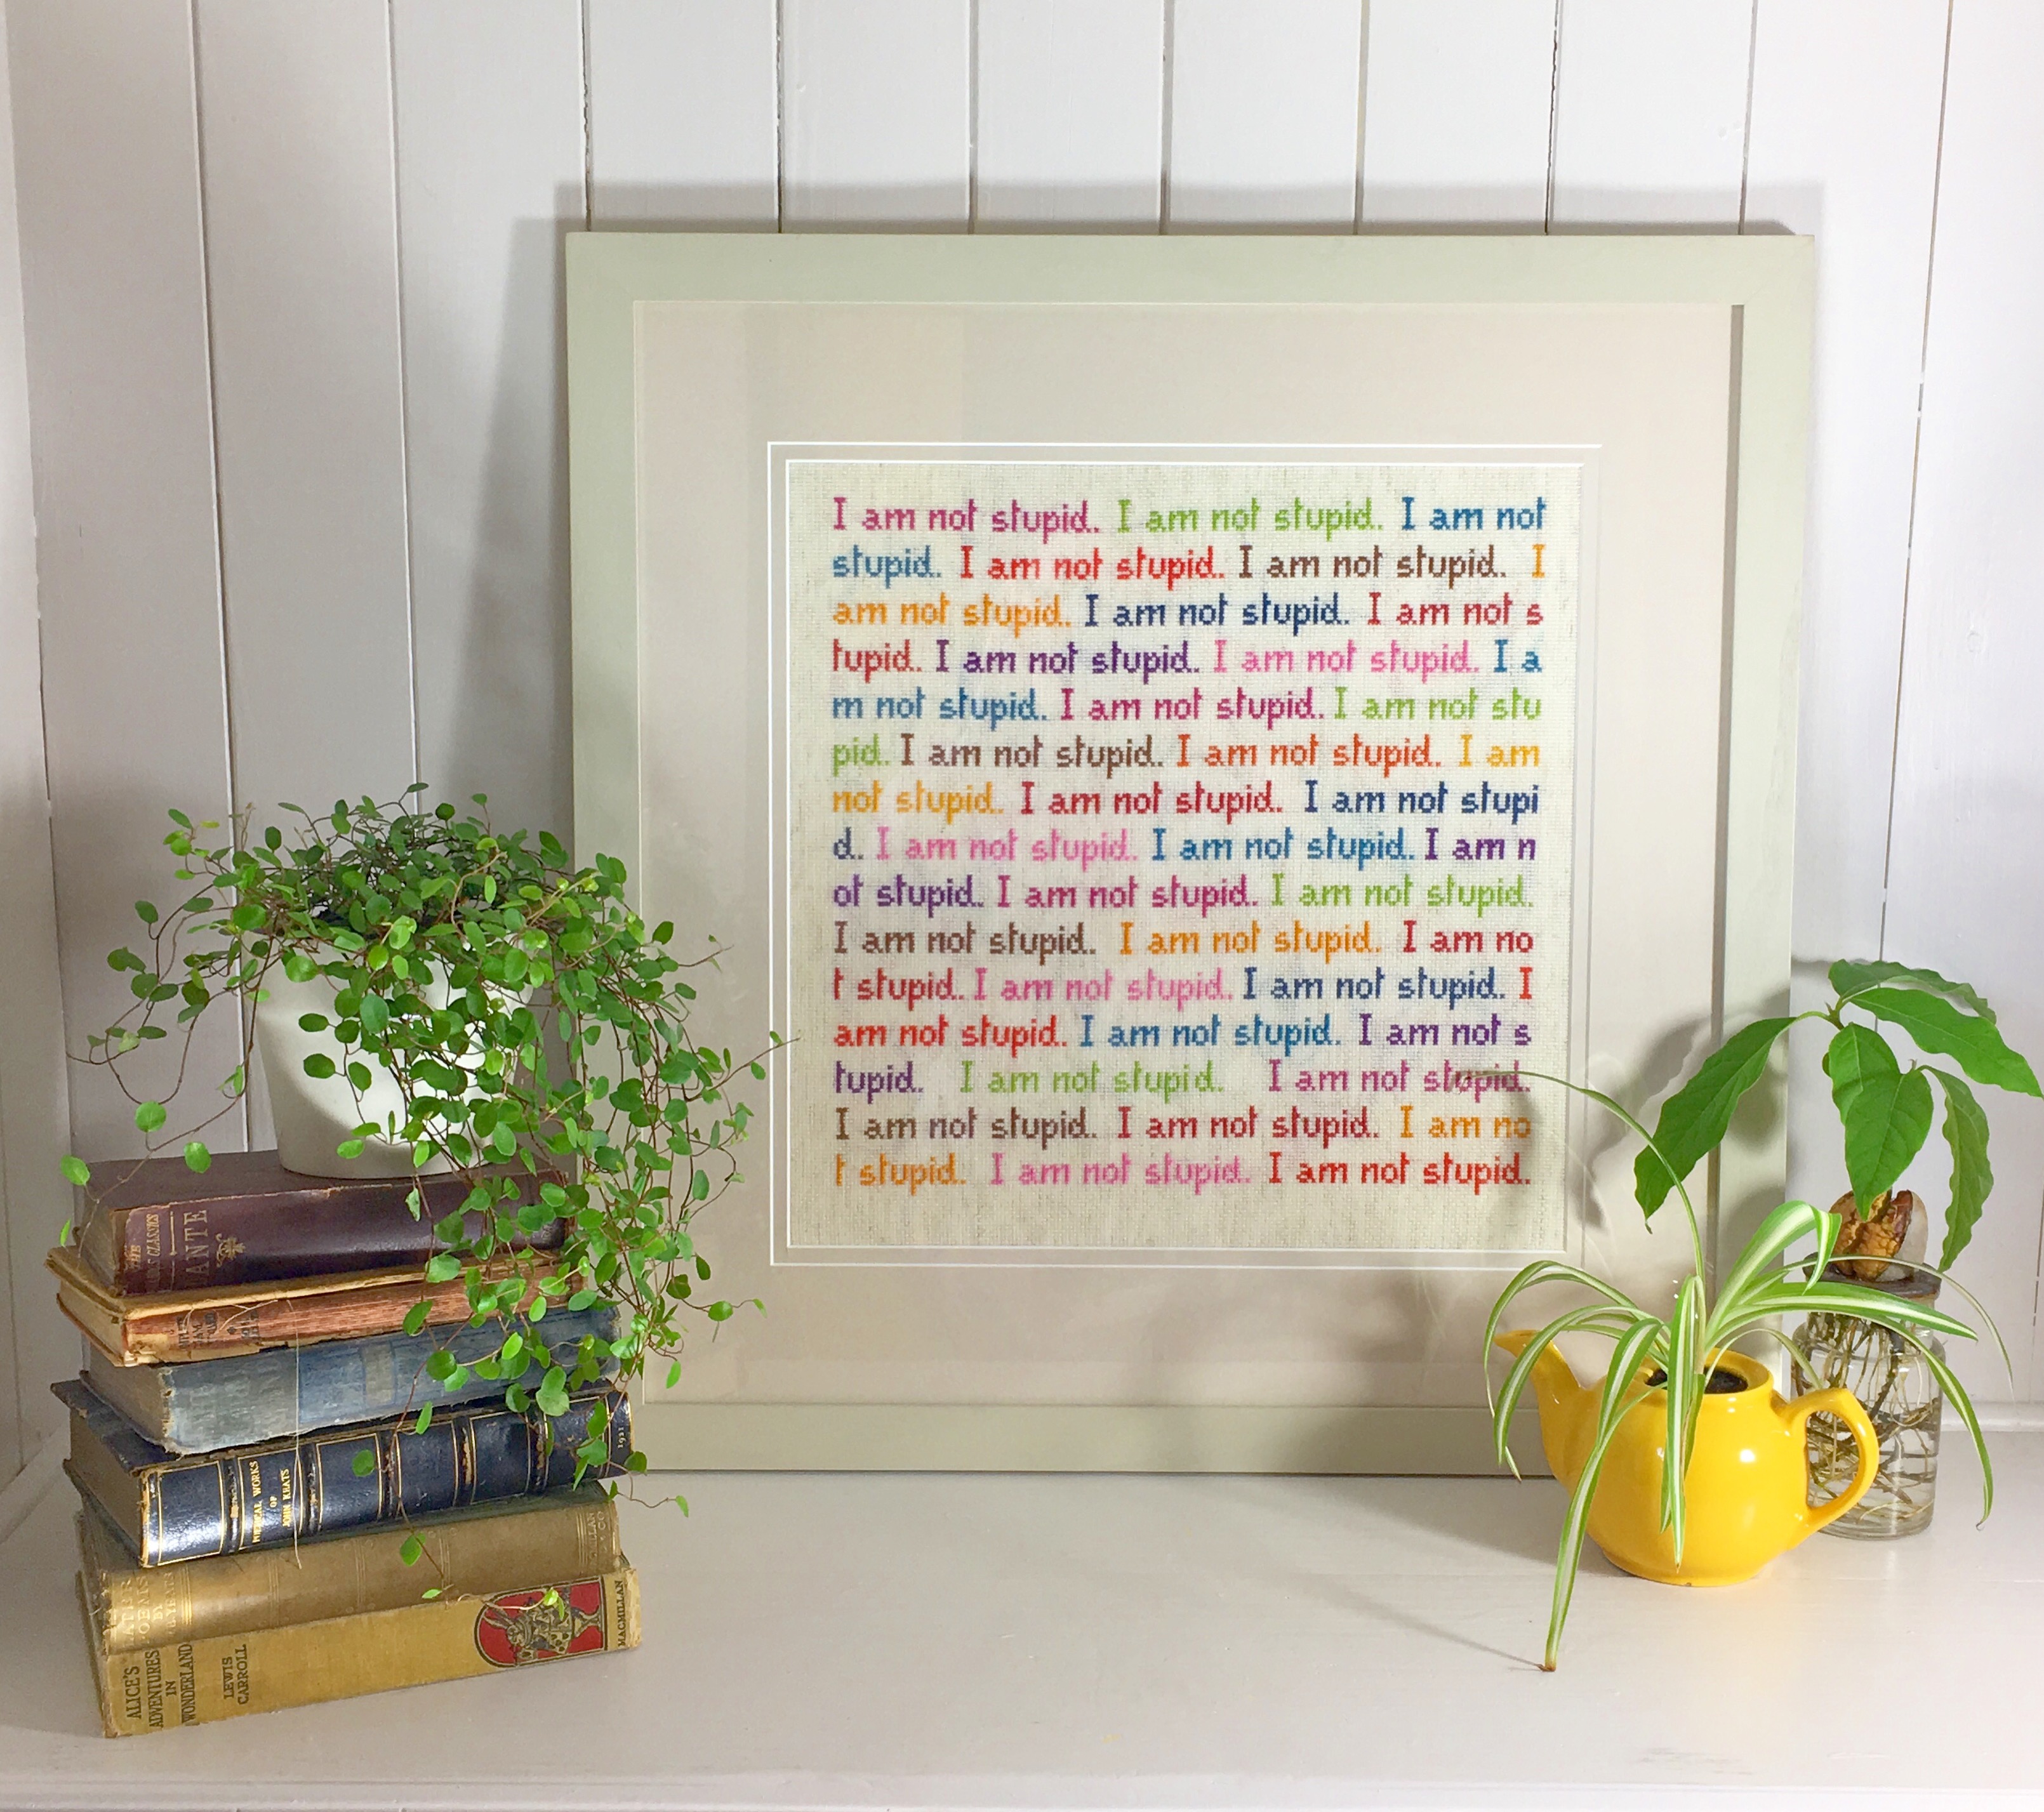 I am not stupid. I am not stupid. I am not
stupid. I am not stupid. I am not stupid. I
am not stupid. I am not stupid. I am not s
tupid. I am not stupid. I am not stupid. I a
m not stupid. I am not stupid. I am not stu
pid. I am not stupid. I am not stupid. I am
not stupid. I am not stupid. I am not stupi
d. I am not stupid. I am not stupid. I am n
ot stupid. I am not stupid. I am not stupid.
I am not stupid. I am not stupid. I am no
t stupid. I am not stupid. I am not stupid. I
am not stupid. I am not stupid. I am not s
tupid. I am not stupid. I am not stupid.
I am not stupid. I am not stupid. I am no
t stupid. I am not stupid. I am not stupid.
THE
CLASSICS
DANTE
WORKS
OF
JOHN KEATS
1921
POEMS
BY
ALICE'S
ADVENTURES
IN
WONDERLAND
LEWIS
CARROLL
MACMILLAN